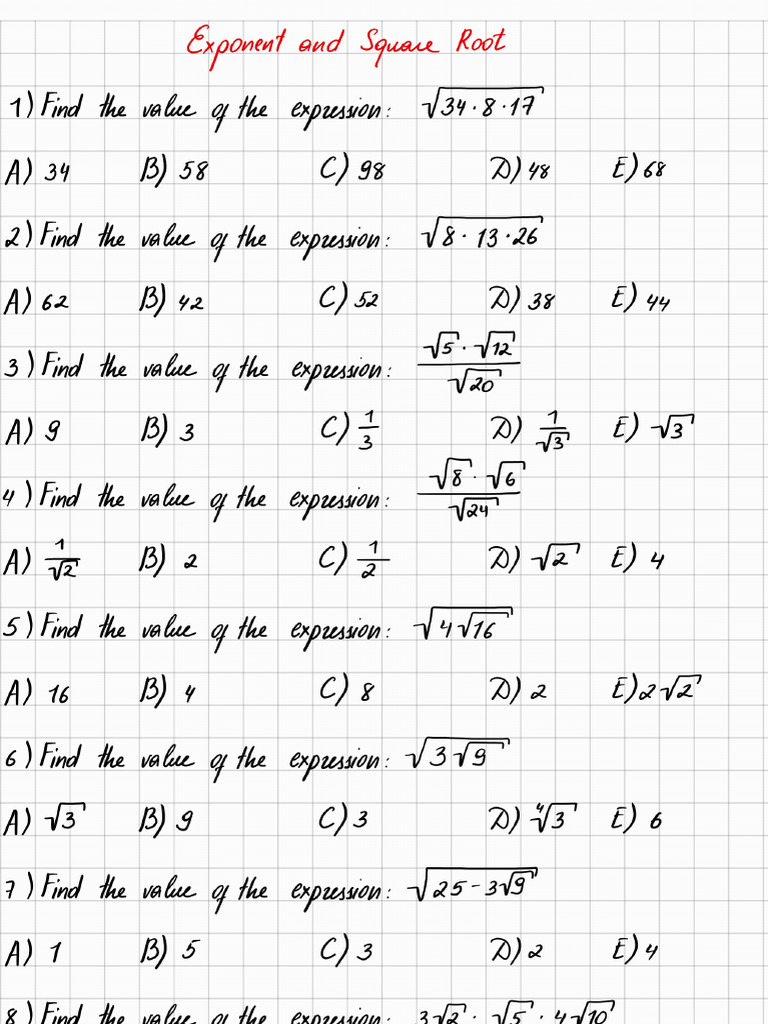 Exponent and Square Root
1) Find the value of the expression: √(34·8·17)
A) 34 B) 58 C) 98 D) 48 E) 68
2) Find the value of the expression: √(8·13·26)
A) 62 B) 42 C) 52 D) 38 E) 44
3) Find the value of the expression: (√5·√12)/√20
A) 9 B) 3 C) 1/3 D) 1/√3 E) √3
4) Find the value of the expression: (√8·√6)/√24
A) 1/√2 B) 2 C) 1/2 D) √2 E) 4
5) Find the value of the expression: √(4√16)
A) 16 B) 4 C) 8 D) 2 E) 2√2
6) Find the value of the expression: √(3√9)
A) √3 B) 9 C) 3 D) ∜3 E) 6
7) Find the value of the expression: √(25-3√9)
A) 1 B) 5 C) 3 D) 2 E) 4
8) Find the value of the expression: 3√2·√5·4√10